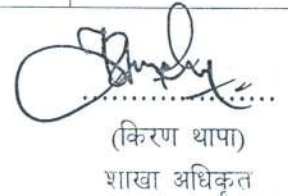 (किरण थापा)
शाखा अधिकृत